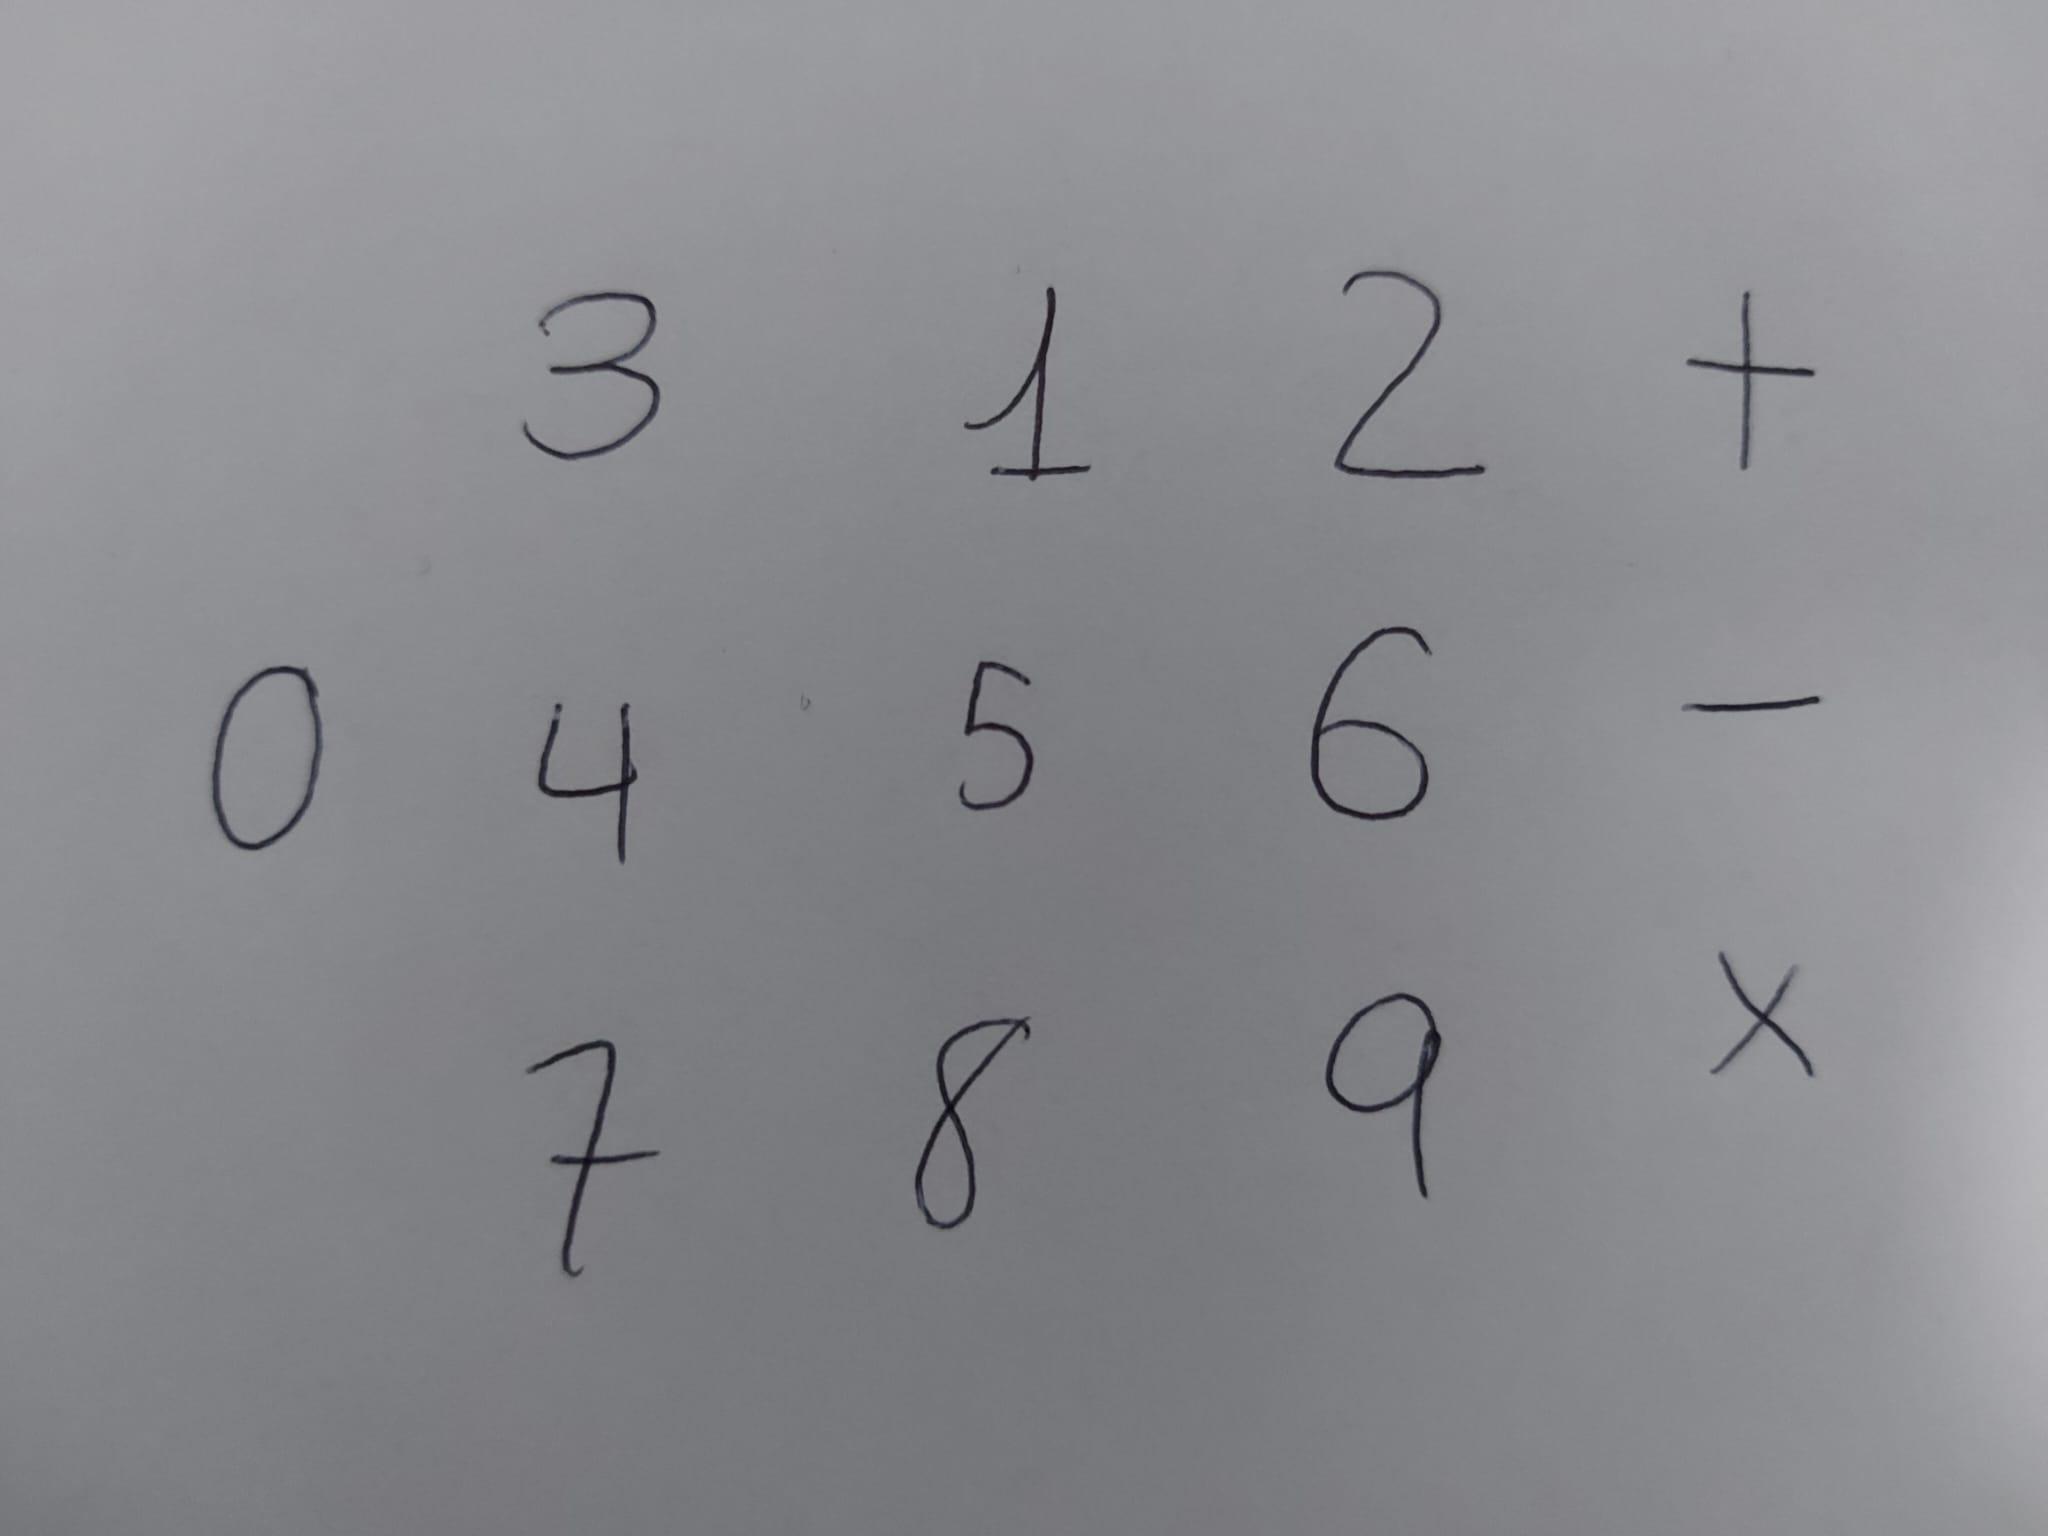 3 1 2 +
0 4 5 6 -
7 8 9 ×